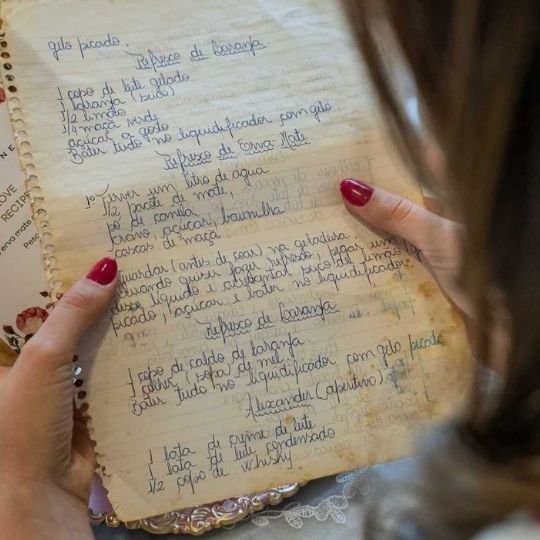 gelo picado.
Refresco de Laranja
1 copo de leite gelado
1 laranja (suco)
1/2 limão
1/4 maçã verde
açúcar a gosto
Bater tudo no liquidificador com gelo
Refresco de Erva-Mate
1º Ferver um litro de água
1/2 pacote de mate,
pó de canela
cravo, açúcar, baunilha
cascas de maçã
guardar (antes de coar) na geladeira.
quando quiser fazer refresco, pegar um
desse líquido e acrescentar suco de limão
picado, açúcar e bater no liquidificador.
Refresco de Laranja
1 copo de caldo de laranja
1 colher (sopa) de mel
Bater tudo no liquidificador com gelo picado
Alexander (aperitivo)
1 lata de creme de leite
1 lata de leite condensado
1/2 copo de whisky
NE
OVE
RECIP
erva mate